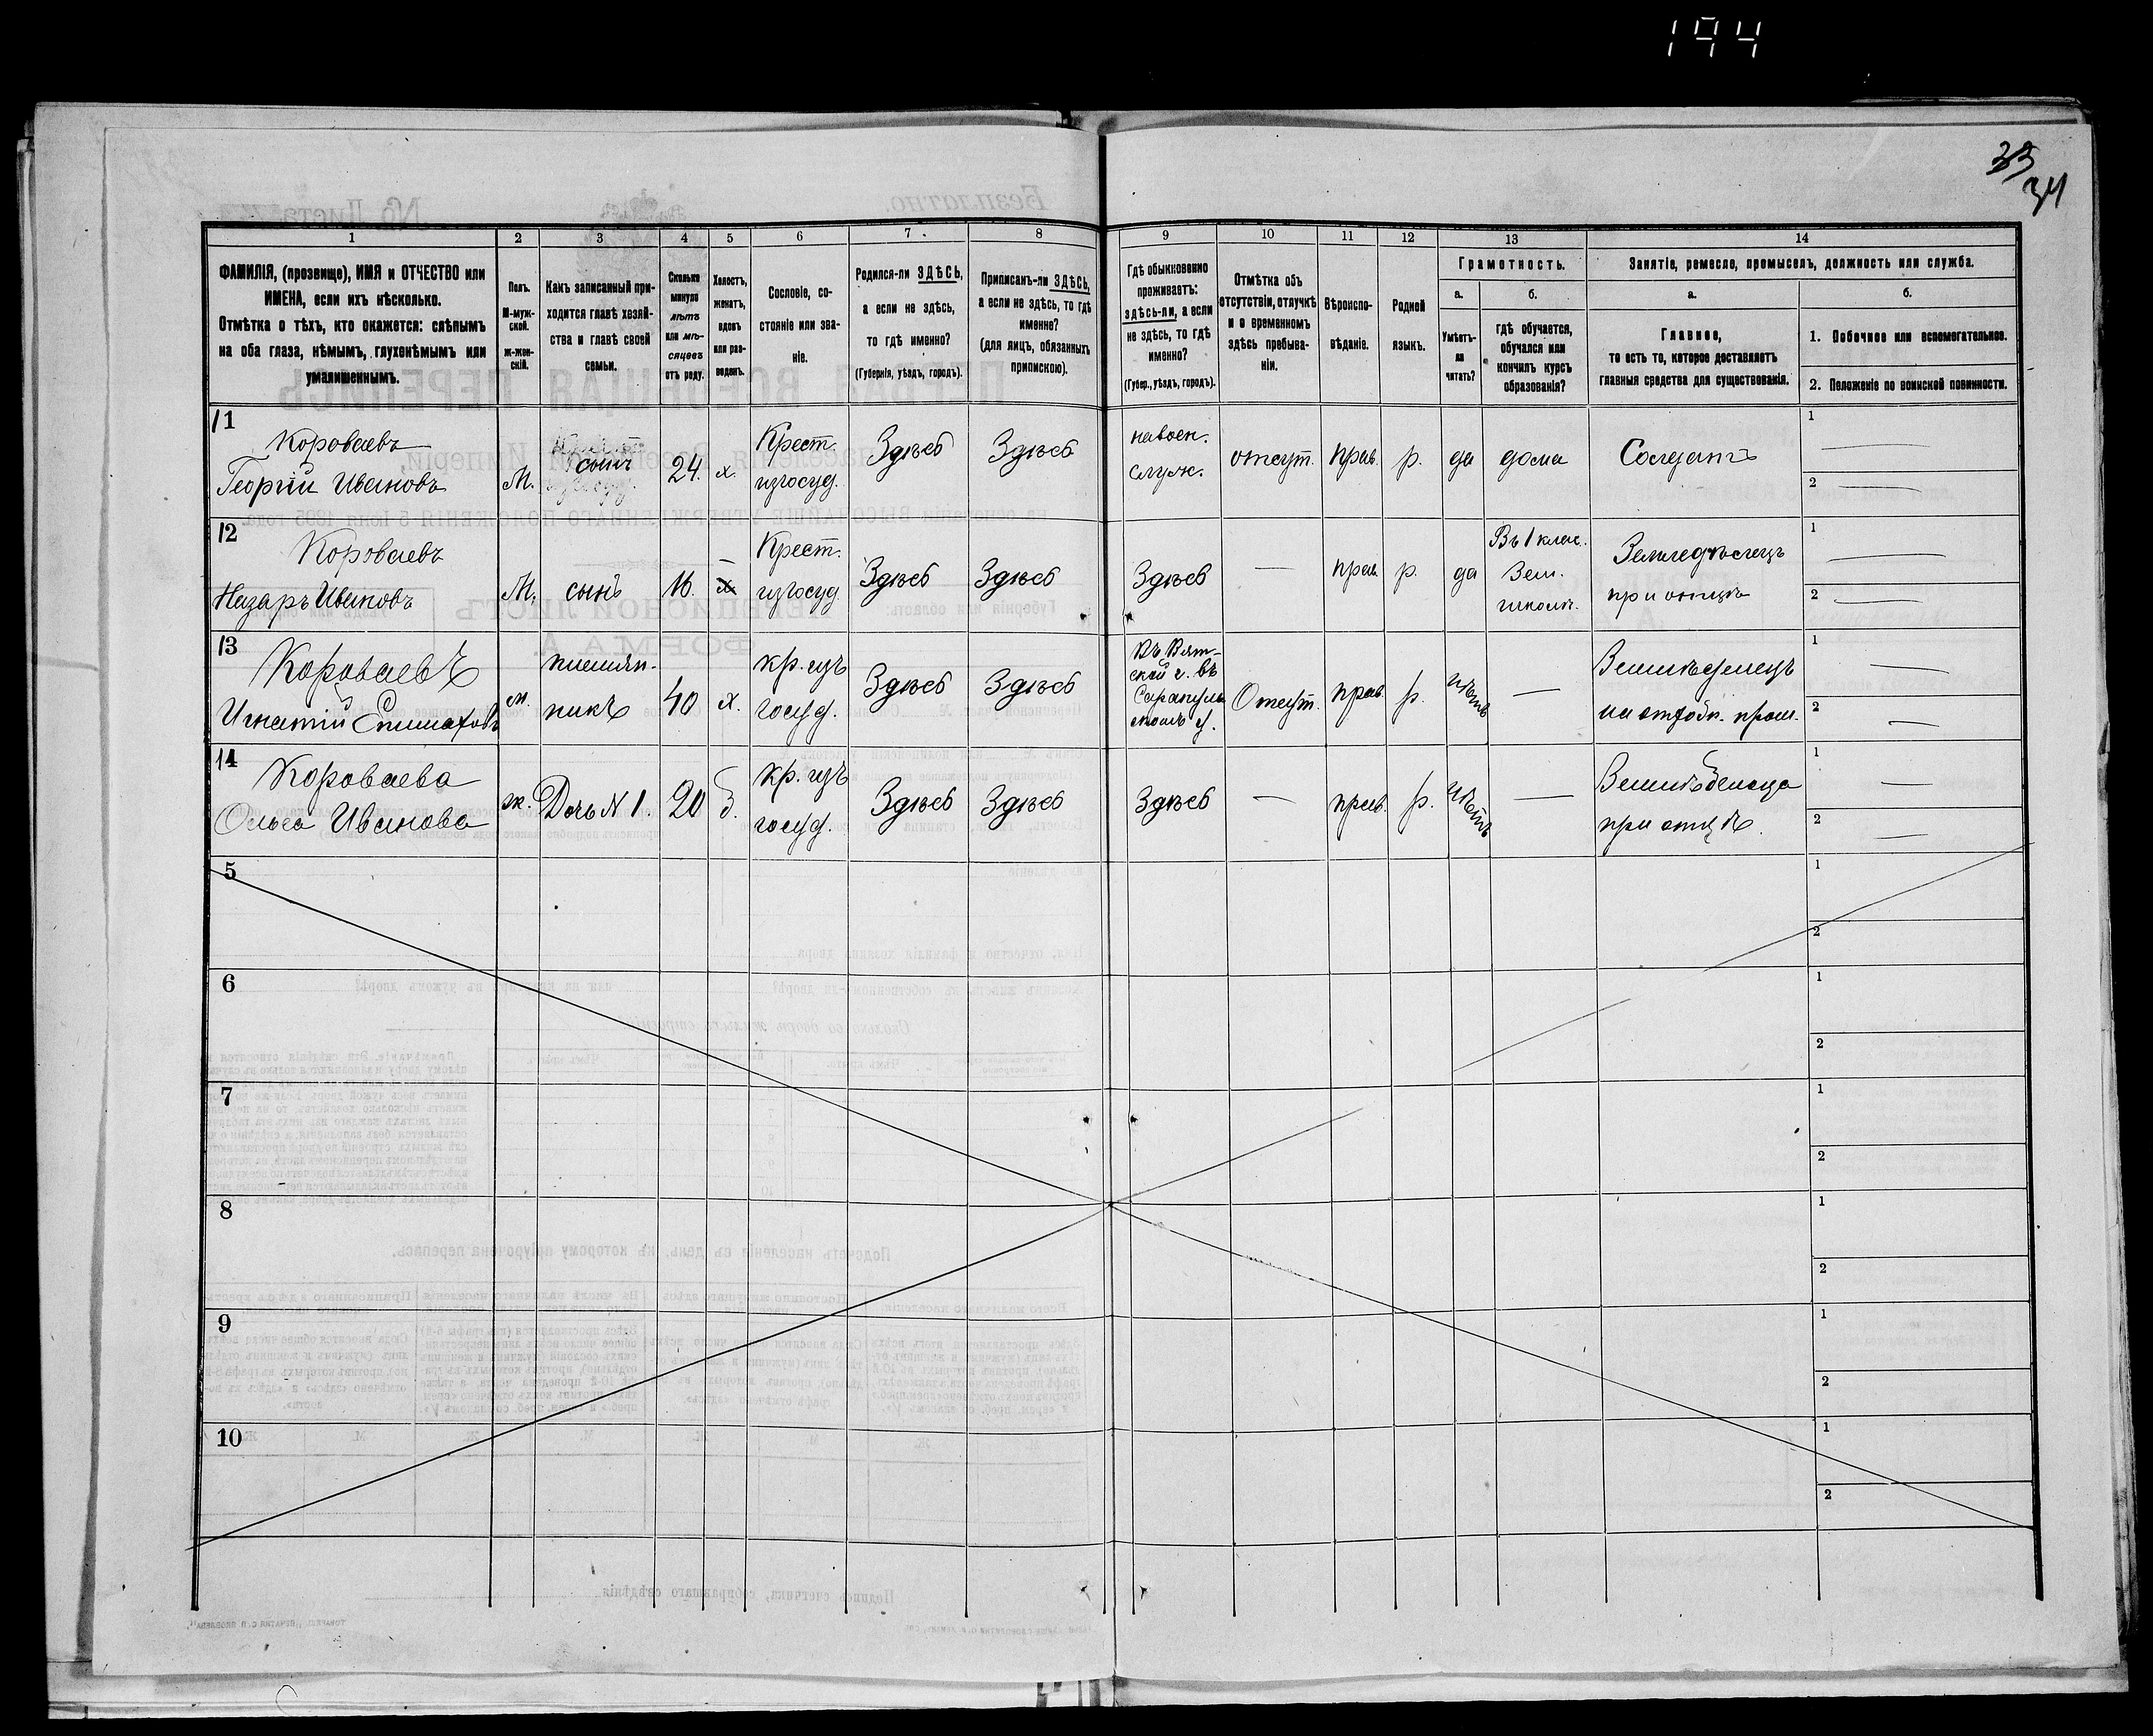 194
33
34
1 2 3 4 5 6 7 8 9 10 11 12 13 14
ФАМИЛІЯ, (прозвище), ИМЯ и ОТЧЕСТВО или
ИМЕНА, если ихъ нѣсколько.
Отмѣтка о тѣхъ, кто окажется: слѣпымъ
на оба глаза, нѣмымъ, глухонѣмымъ или
умалишеннымъ.
Полъ.
М-муж-
ской.
ж-жен-
скій.
Какъ записанный при-
ходится главѣ хозяй-
ства и главѣ своей
семьи.
Сколько
минуло
лѣтъ
или мѣ-
сяцевъ
отъ роду.
Холостъ,
женатъ,
вдовъ
или раз-
веденъ.
Сословіе, со-
стояніе или зва-
ніе.
Родился-ли ЗДѢСЬ,
а если не здѣсь,
то гдѣ именно?
(Губернія, уѣздъ, городъ).
Приписанъ-ли ЗДѢСЬ,
а если не здѣсь, то гдѣ
именно?
(для лицъ, обязанныхъ
припискою).
Гдѣ обыкновенно
проживаетъ:
здѣсь-ли, а если
не здѣсь, то гдѣ
именно?
(Губер., уѣздъ, городъ).
Отмѣтка объ
отсутствіи, отлучкѣ
и о временномъ
здѣсь пребыва-
ніи.
Вѣроиспо-
вѣданіе.
Родной
языкъ.
Грамотность.
а.
Умѣетъ-
ли
читать?
б.
гдѣ обучается,
обучался или
кончилъ курсъ
образованія?
Занятіе, ремесло, промыселъ, должность или служба.
а.
Главное,
то есть то, которое доставляетъ
главныя средства для существованія.
б.
1. Побочное или вспомогательное.
2. Положеніе по воинской повинности.
11
Короваевъ
Георгій Ивановъ
М.
сынъ
24.
х.
Крест.
изъ госуд.
Здѣсь
Здѣсь
на воен.
служ.
отсут.
прав.
р.
да
дома
Солдатъ
1 —
2 —
12
Короваевъ
Назаръ Ивановъ
М.
сынъ
16.
—
х
Крест.
изъ госуд.
Здѣсь
Здѣсь
Здѣсь
—
прав.
р.
да
Въ 1 клас.
Зем.
школѣ.
Земледѣлецъ
при отцѣ
1 —
2 —
13
Короваевъ
Игнатій Епимаховъ
м.
племян-
никъ
40
х.
кр. изъ
госуд.
Здѣсь
Здѣсь
Въ Вят-
ской г. въ
Сарапуль
скомъ у.
Отсут.
прав.
р.
нѣтъ
—
1 —
2 —
14
Короваева
Ольга Иванова
ж.
Дочь N 1.
20
д.
кр. изъ
госуд.
Здѣсь
Здѣсь
Здѣсь
—
прав.
р.
нѣтъ
—
при отцѣ.
1 —
2 —
5
1
2
6
1
2
7
1
2
8
1
2
9
1
2
10
1
2